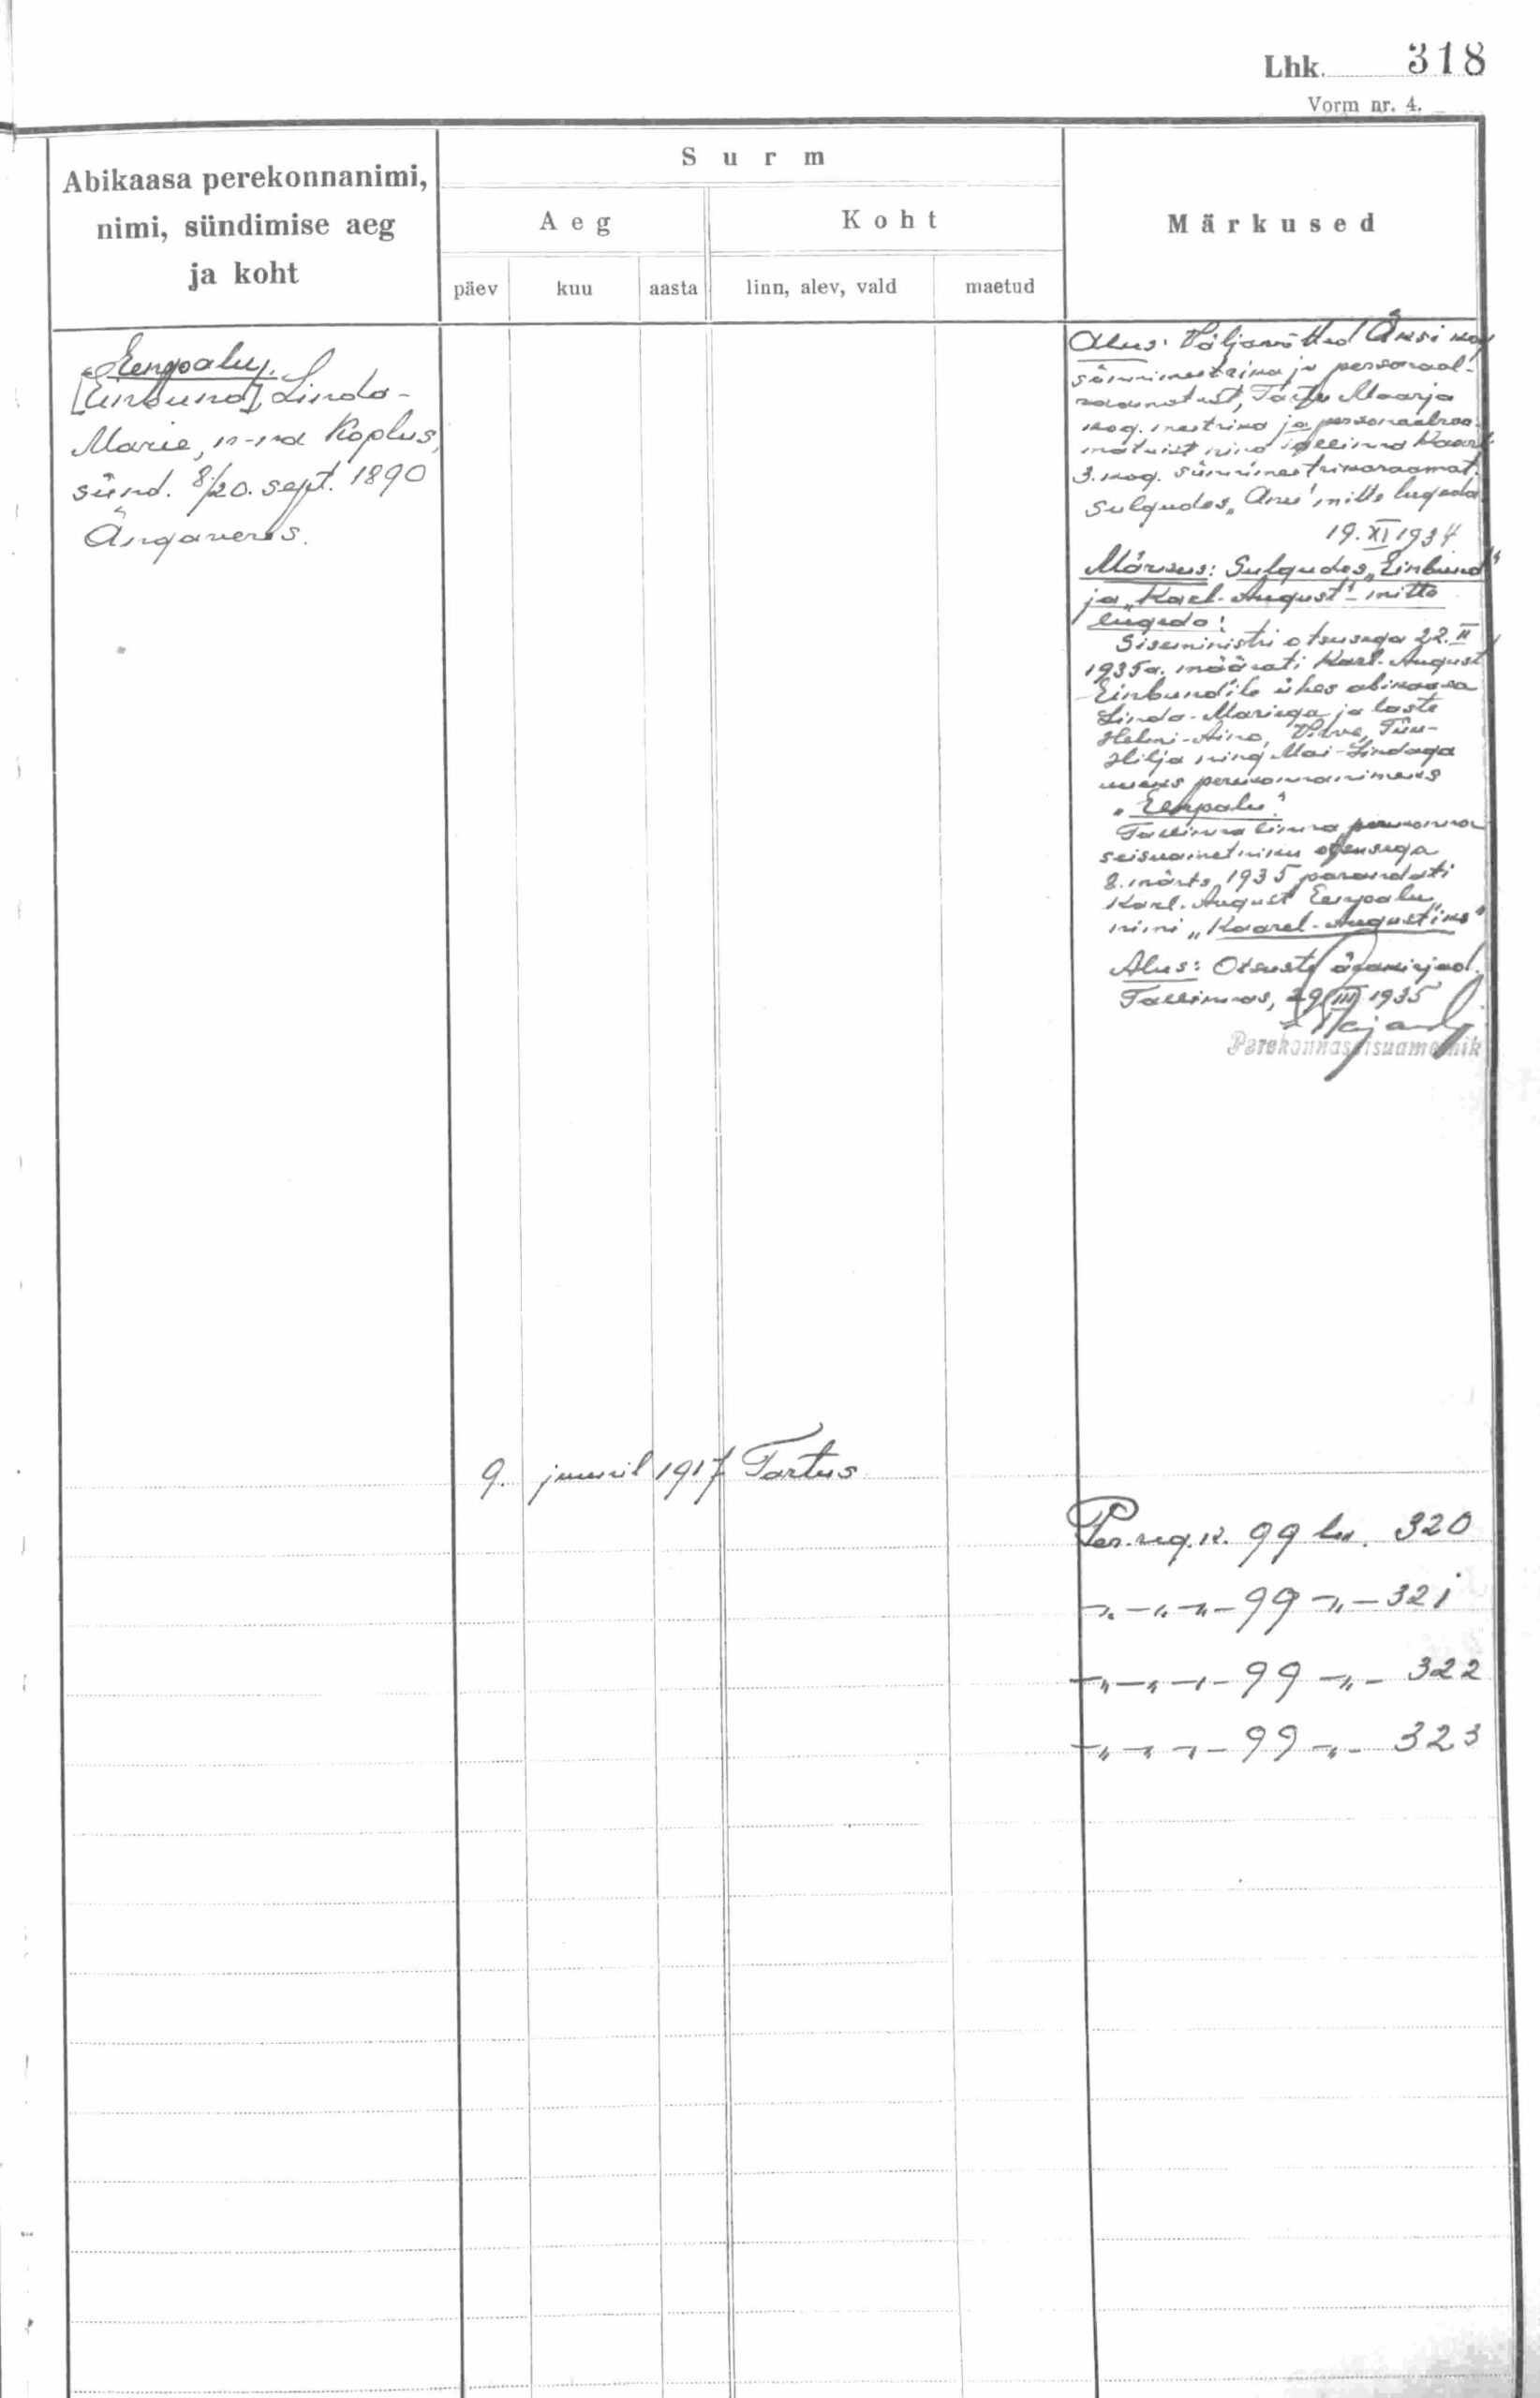 Lhk. 318
Vorm nr. 4.
Abikaasa perekonnanimi,
nimi, sündimise aeg
ja koht
Surm
Aeg
Koht
päev
kuu
aasta
linn, alev, vald
maetud
Märkused
Eenpalu.
[Einbund], Linda-
Marie, n-na Koplus,
sünd. 8/20. sept. 1890
Änganeres.
Alus: Väljavõtted Äksi kog.
sünnimeetrika ja personaal-
raamatust, Tartu Maarja
kog. meetrika ja personaalraa-
matuist ning Tallinna Kaarli
3. kog. sünnimeetrikaraamat.
Sulgudes "Anu" mitte lugeda
19. XI 1934.
Märkus: Sulgudes "Einbund"
ja "Karl-August" - mitte
lugeda!
Siseministri otsusega 22. II
1935 a. määrati Karl-August
Einbund'ile ühes abikaasa
Linda-Mariega ja laste
Helmi-Aino, Virve, Tiiu-
Hilja ning Mai-Lindaga
uueks perekonnanimeks
"Eenpalu".
Tallinna linna perekonna
seisuametniku otsusega
8. märts 1935 parandati
Karl-August Eenpalu
nimi "Kaarel-Augustiks"
Alus: Otsuste ärakirjad.
Tallinnas, 29. III 1935
Perekonnaseisuametnik
9. juunil 1917 Tartus
Per. reg. k. 99 lk. 320
-"-"-"- 99 -"- 321
-"-"-"- 99 -"- 322
-"-"-"- 99 -"- 323